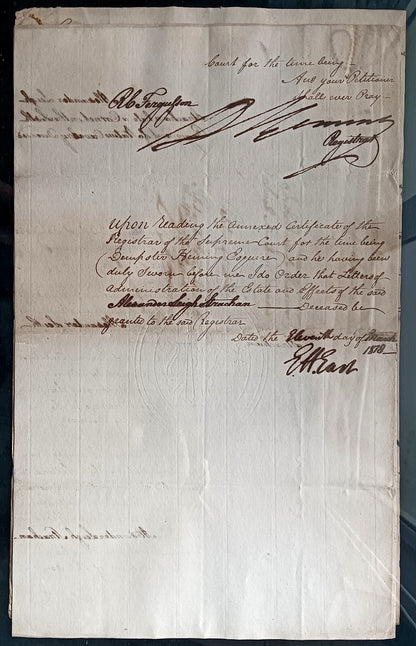 Court for the time being
And your Petitioner
Shall ever Pray
Rt. C Fergusson
D Heming
Registrar
Upon reading the annexed Certificate of the
Registrar of the Supreme Court for the time being
(Dempster Heming Esquire) and he having been
duly Sworn before me I do Order that Letters of
administration of the Estate and Effects of the said
Alexander Leigh Strachan Deceased be
granted to the said Registrar
Dated the Eleventh day of March
E H East